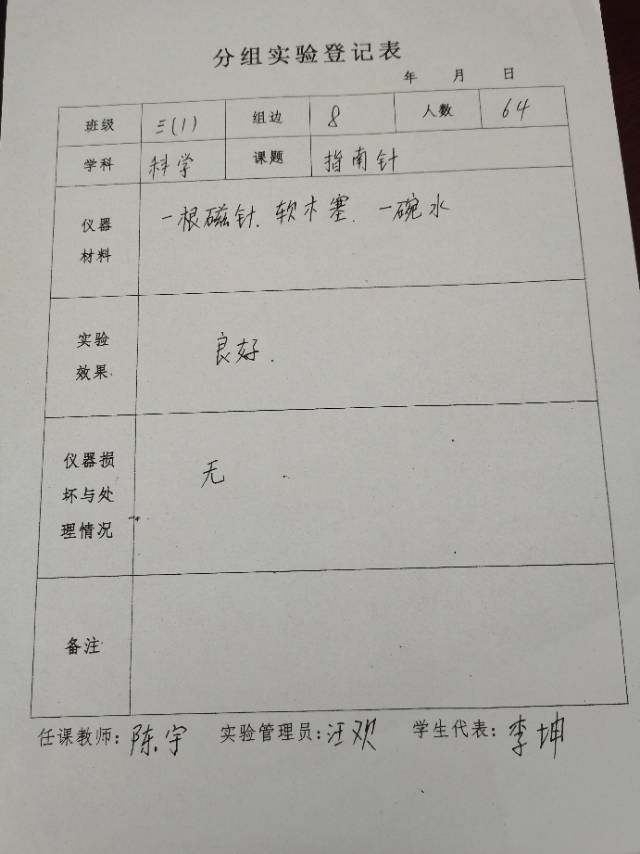 分组实验登记表
年 月 日
班级 三(1) 组边 8 人数 64
学科 科学 课题 指南针
仪器材料 一根磁针、软木塞、一碗水
实验效果 良好.
仪器损坏与处理情况 无
备注
任课教师: 陈宇 实验管理员: 汪欢 学生代表: 李坤